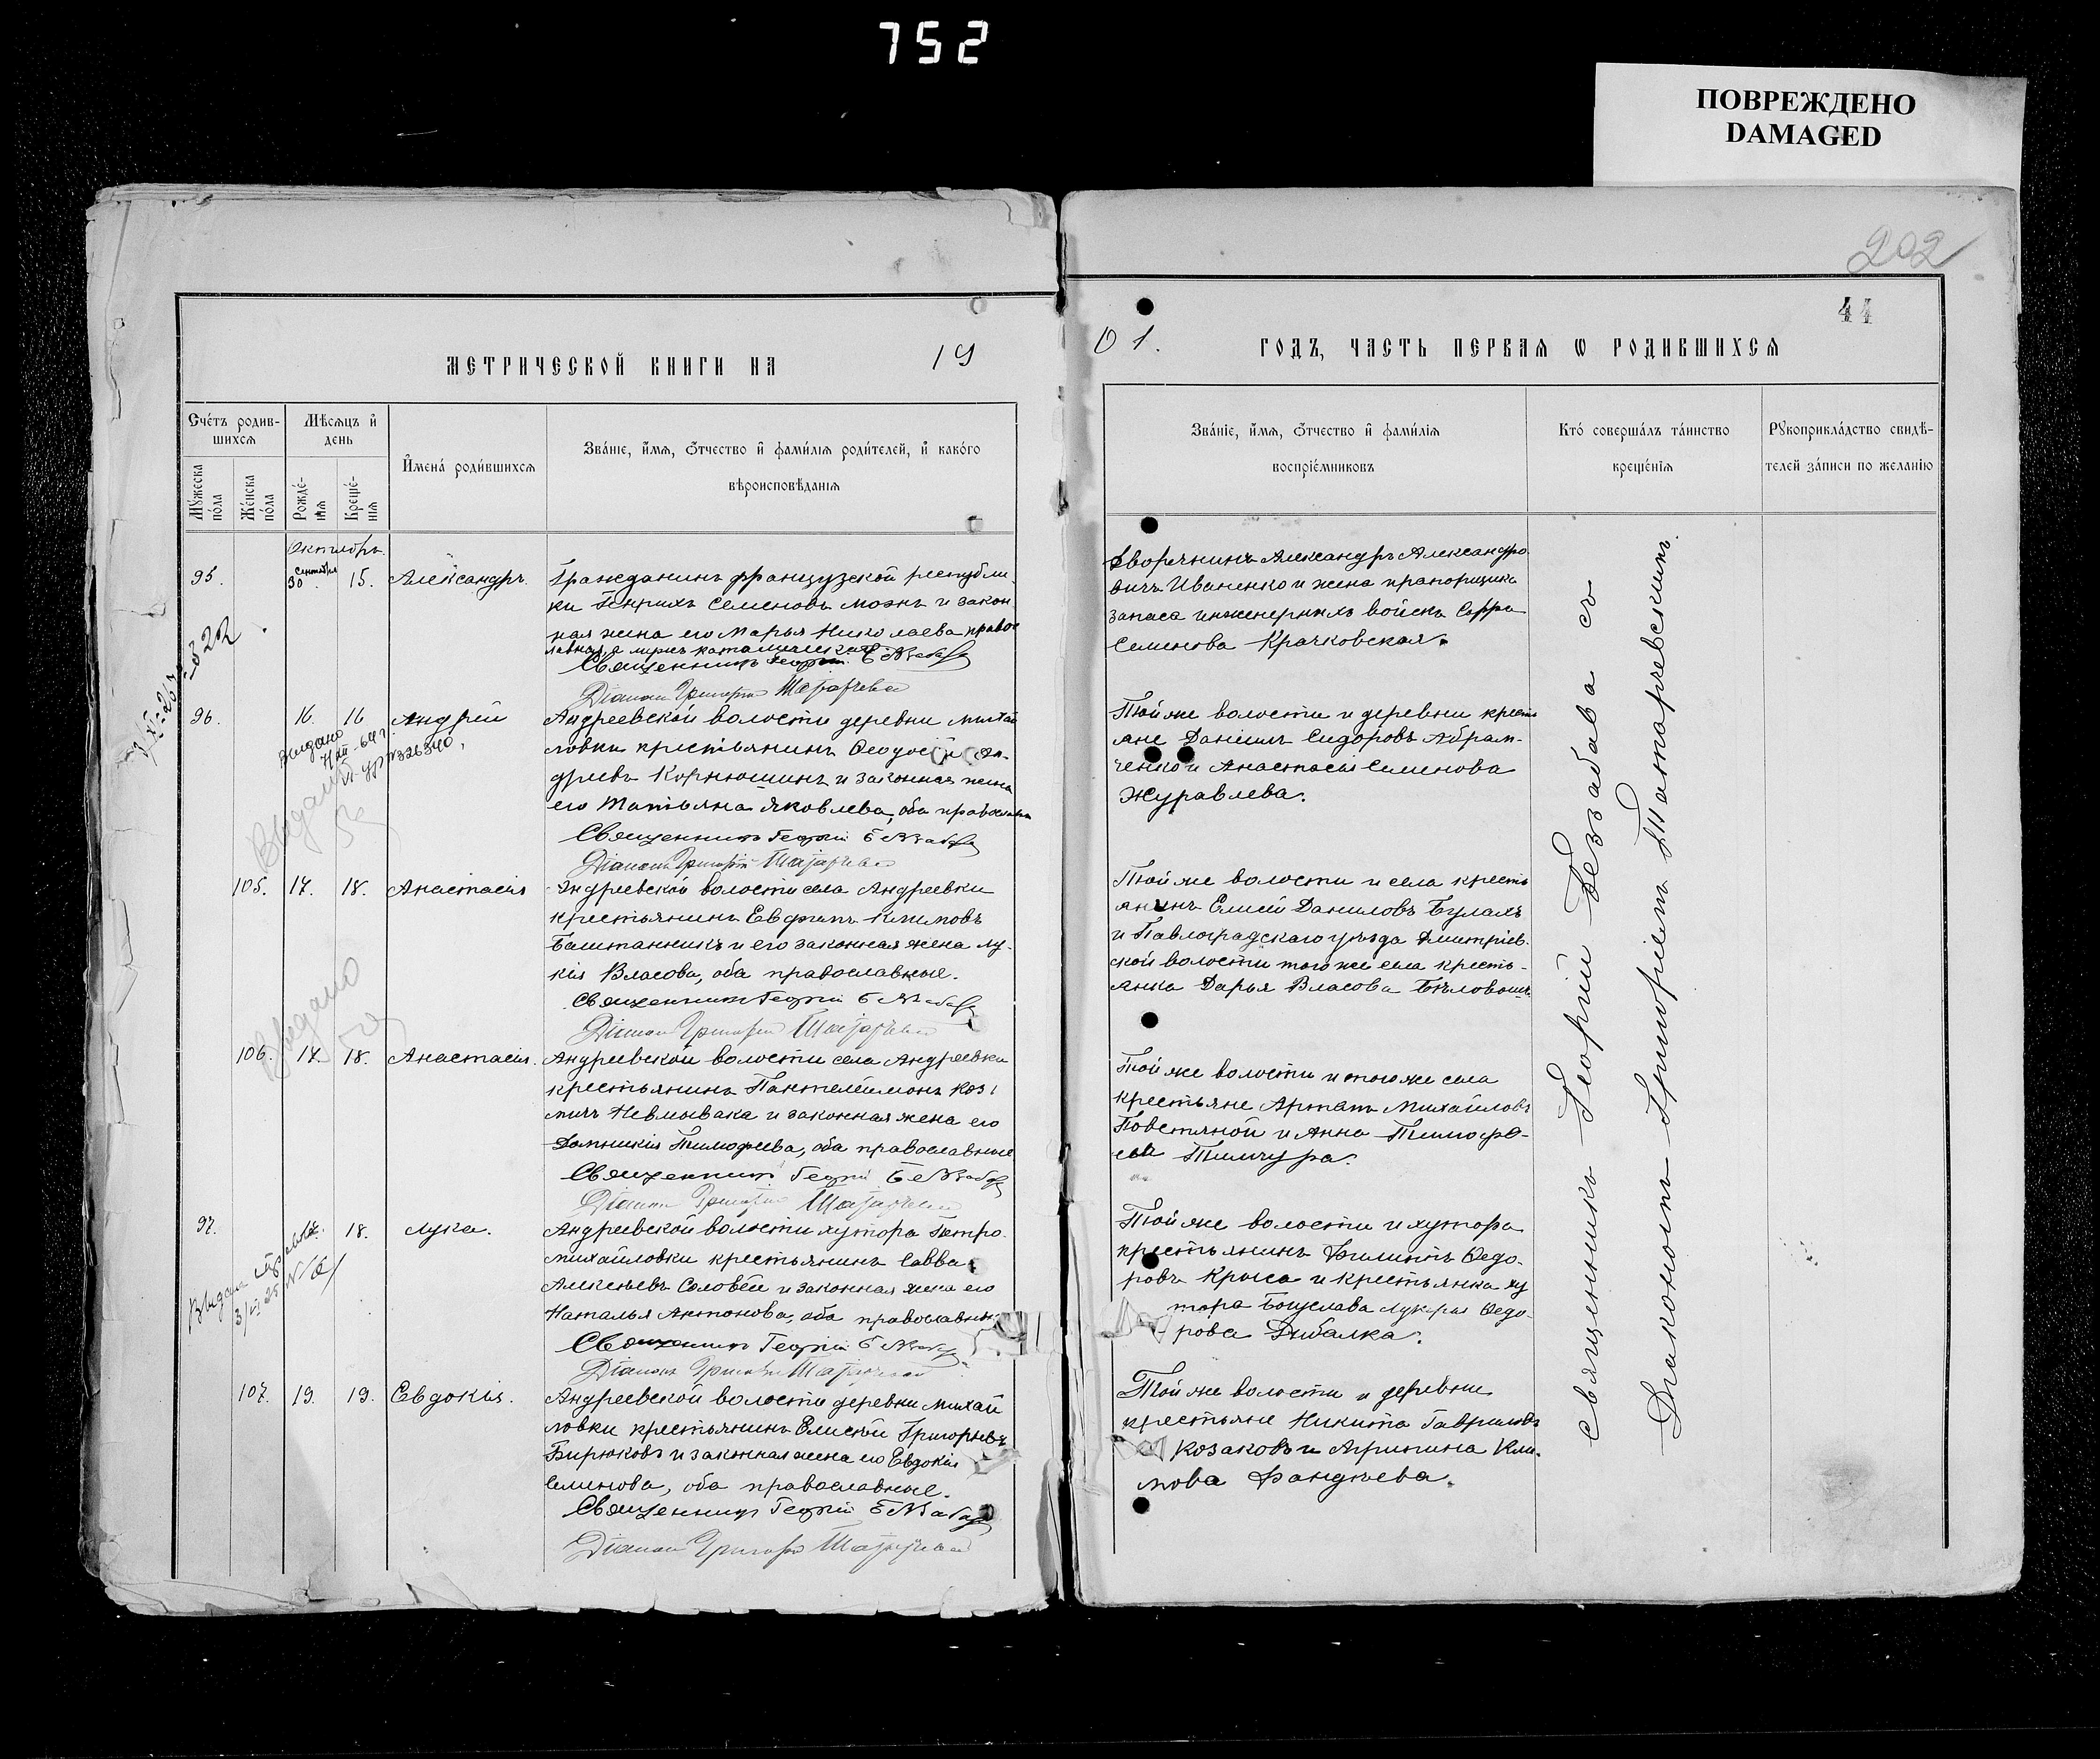 752
ПОВРЕЖДЕНО
DAMAGED
202
44
МЕТРИЧЕСКОЙ КНИГИ НА 19
01. ГОДЪ, ЧАСТЬ ПЕРВАЯ Ѡ РОДИВШИХСЯ
Счетъ родив-
шихся
Мужеска пола
Женска пола
Мѣсяцъ и день
Рожде-
нія
Креще-
нія
Имена родившихся
Званіе, имя, отчество и фамилія родителей, и какого
вѣроисповѣданія
Званіе, имя, отчество и фамилія
воспріемниковъ
Кто совершалъ таинство
крещенія
Рукоприкладство свидѣ-
телей записи по желанію
Октябрь
95. сентября 30. 15. Александръ.
Гражданинъ французской республи-
ки Генрихъ Семеновъ Моэнъ и закон
ная жена его Марья Николаева, право
славная, а мужъ католической
Священникъ Георгій Беззабава
Діаконъ Григорій
Дворянинъ Александръ Александро
вичъ Иваненко и жена прапорщика
запаса инженерныхъ войскъ Софья
Семенова Крачковская.
96. 16. 16. Андрей
Андреевской волости деревни Михай
ловки крестьянинъ Ѳеодосій Ан-
дреевъ Корнюшинъ и законная жена
его Татьяна Яковлева, оба православн
Священникъ Георгій Беззабава
Діаконъ Григорій
Той же волости и деревни кресть
яне Даніилъ Сидоровъ Абрам-
ченко и Анастасія Семенова
Журавлева.
Выдано
105. 17. 18. Анастасія
Андреевской волости села Андреевки
крестьянинъ Евфимъ Климовъ
Баштанникъ и его законная жена Лу-
кія Власова, оба православные.
Священникъ Георгій Беззабава
Діаконъ Григорій
Той же волости и села кресть
янинъ Елисей Даниловъ Булахъ
и Павлоградскаго уѣзда Дмитріев-
ской волости того же села кресть-
янка Дарья Власова
Выдано
106. 17. 18. Анастасія.
Андреевской волости села Андреевки
крестьянинъ Пантелеимонъ Коз
мичъ Невмывака и законная жена его
Домникія Тимофеева, оба православные
Священникъ Георгій Беззабава
Діаконъ Григорій
Той же волости и того же села
крестьяне Артемъ Михайловъ
Повстяной и Анна Тимофе-
ева
97. 17. 18. Лука.
Андреевской волости хутора Петро
михайловки крестьянинъ Савва
Алексѣевъ Соловей и законная жена его
Наталья Антонова, оба православные
Священникъ Георгій Беззабава
Діаконъ Григорій
Той же волости и хутора
крестьянинъ Филиппъ Ѳедо-
ровъ Крыса и крестьянка ху
тора Богуслава Лукерья Ѳедо-
рова Рыбалка.
107. 19. 19. Евдокія.
Андреевской волости деревни Михай
ловки крестьянинъ Елисей Григорьевъ
Бирюковъ и законная жена его Евдокія
Семенова, оба православные.
Священникъ Георгій Беззабава
Діаконъ Григорій
Той же волости и деревни
крестьяне Никита Гавриловъ
Козаковъ и Агрипина Кли-
мова Фандѣева.
Священникъ Георгій Беззабава съ
Діакономъ Григоріемъ Татарчевскимъ.